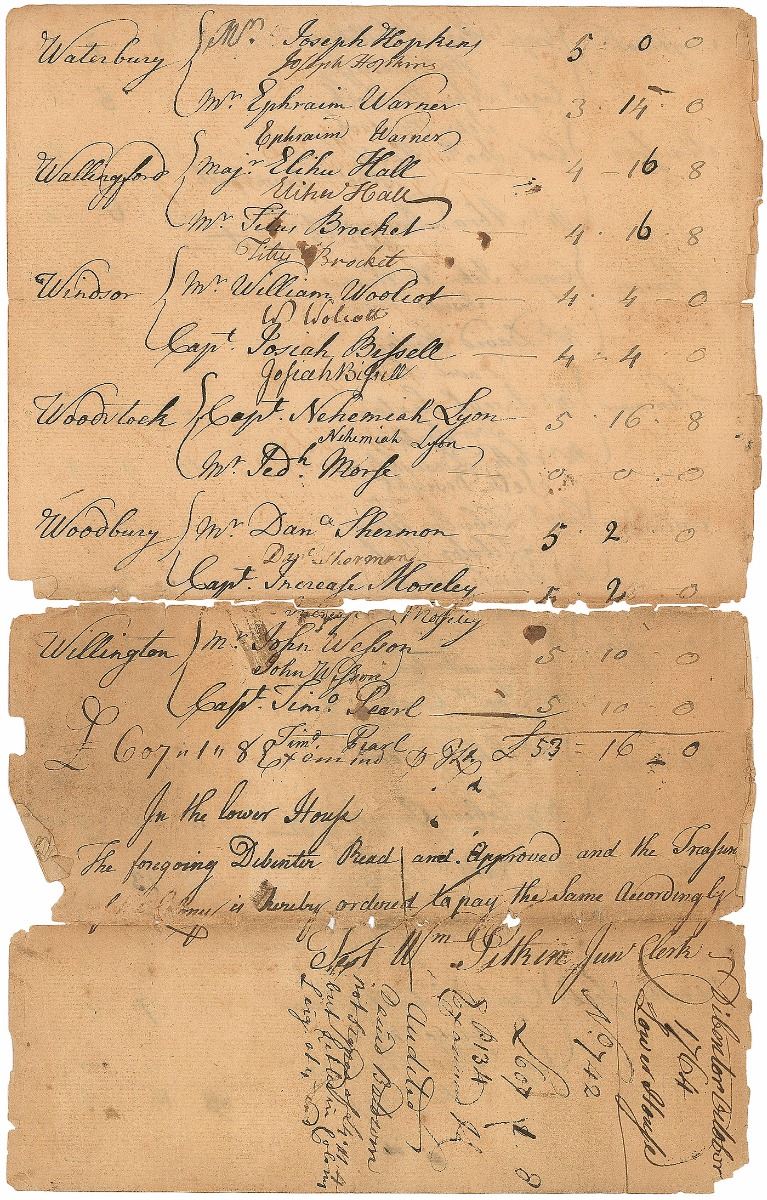 Waterbury Mr. Joseph Hopkins 5 0 0
Joseph Hopkins
Mr Ephraim Warner 3 - 14 - 0
Ephraim Warner
Wallingford Majr Elihu Hall 4 - 16 8
Elihu Hall
Mr Titus Brocket 4 - 16 - 8
Titus Brocket
Windsor Mr William Woolcot 4 - 4 - 0
W Wolcott
Capt. Josiah Bissell 4 - 4 - 0
Josiah Bissell
Woodstock Capt. Nehemiah Lyon 5 - 16 - 8
Nehemiah Lyon
Mr Jedh. Morse 0 - 0 - 0
Woodbury Mr Danel Shermon 5 2 0
Sherman
Capt. Increase Moseley 5 - 2 0
Increase Mosely
Willington Mr John Wesson 5 - 10 - 0
John Wesson
Capt. Timo. Pearl 5 10 - 0
£ 607 " 1 " 8 Timo. Pearl £53 - 16 - 0
Examind
In the lower House
The foregoing Debenter Read and Approved and the Treasurer
is hereby ordered to pay the Same Accordingly
Test Wm Pitkin Junr Clerk
Debenter October
1764
Lower House
No. 742
£607 1. 8
P B134
Examined
Audited
David Baldwin
not signed
but Setled in Colony